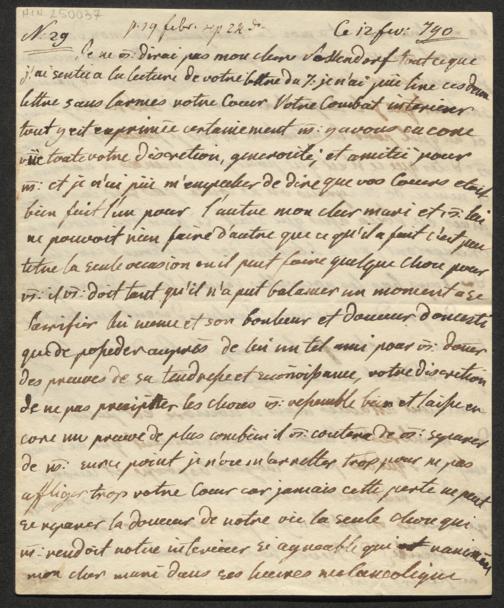 N. 29 p. 19 febr. rep 22 d.
Ce 12 fev: 790
Je ne v̄s: dirai pas mon chere Sallendorf tout ce que
j'ai sentue a la lecture de votre lettre du 7: je n'ai pue lire ces
lettre sans larmes votre Coeur Votre Combat interieur
tout y est exprimée certainement v̄s: y avous encore
toute votre discretion, generosité, et amitié pour
n̄s: et je n'ai pue m'empecher de dire que vos Coeurs etoit
bien fait l'un pour l'autre mon cher mari et v̄s: lui
ne pouvoit rien faire d'autre que ce qu'il a fait c'est peu
tetre la seule occasion ou il peut faire quelque chose pour
v̄s: il v̄s: doit tant qu'il n'a put balancer un moment a se
sacrifier lui meme et son bonheur et douceur
que de posseder auprès de lui un tel ami pour v̄s: doner
des preuves de sa tendresse et reconoissance, votre discretion
de ne pas precipitter les choses v̄s: resemble bien et laisse en
core un preuve de plus combien il v̄s: coutera de n̄s: separer
de n̄s: sur ce point je n'ose m'arretter trop pour ne pas
affliger trop votre Coeur car jamais cette perte ne peut
se reparer la douceur de notre vie la seule chose qui
n̄s: rendoit notre interieur si agreable qui
mon cher mari dans ses heures melancolique